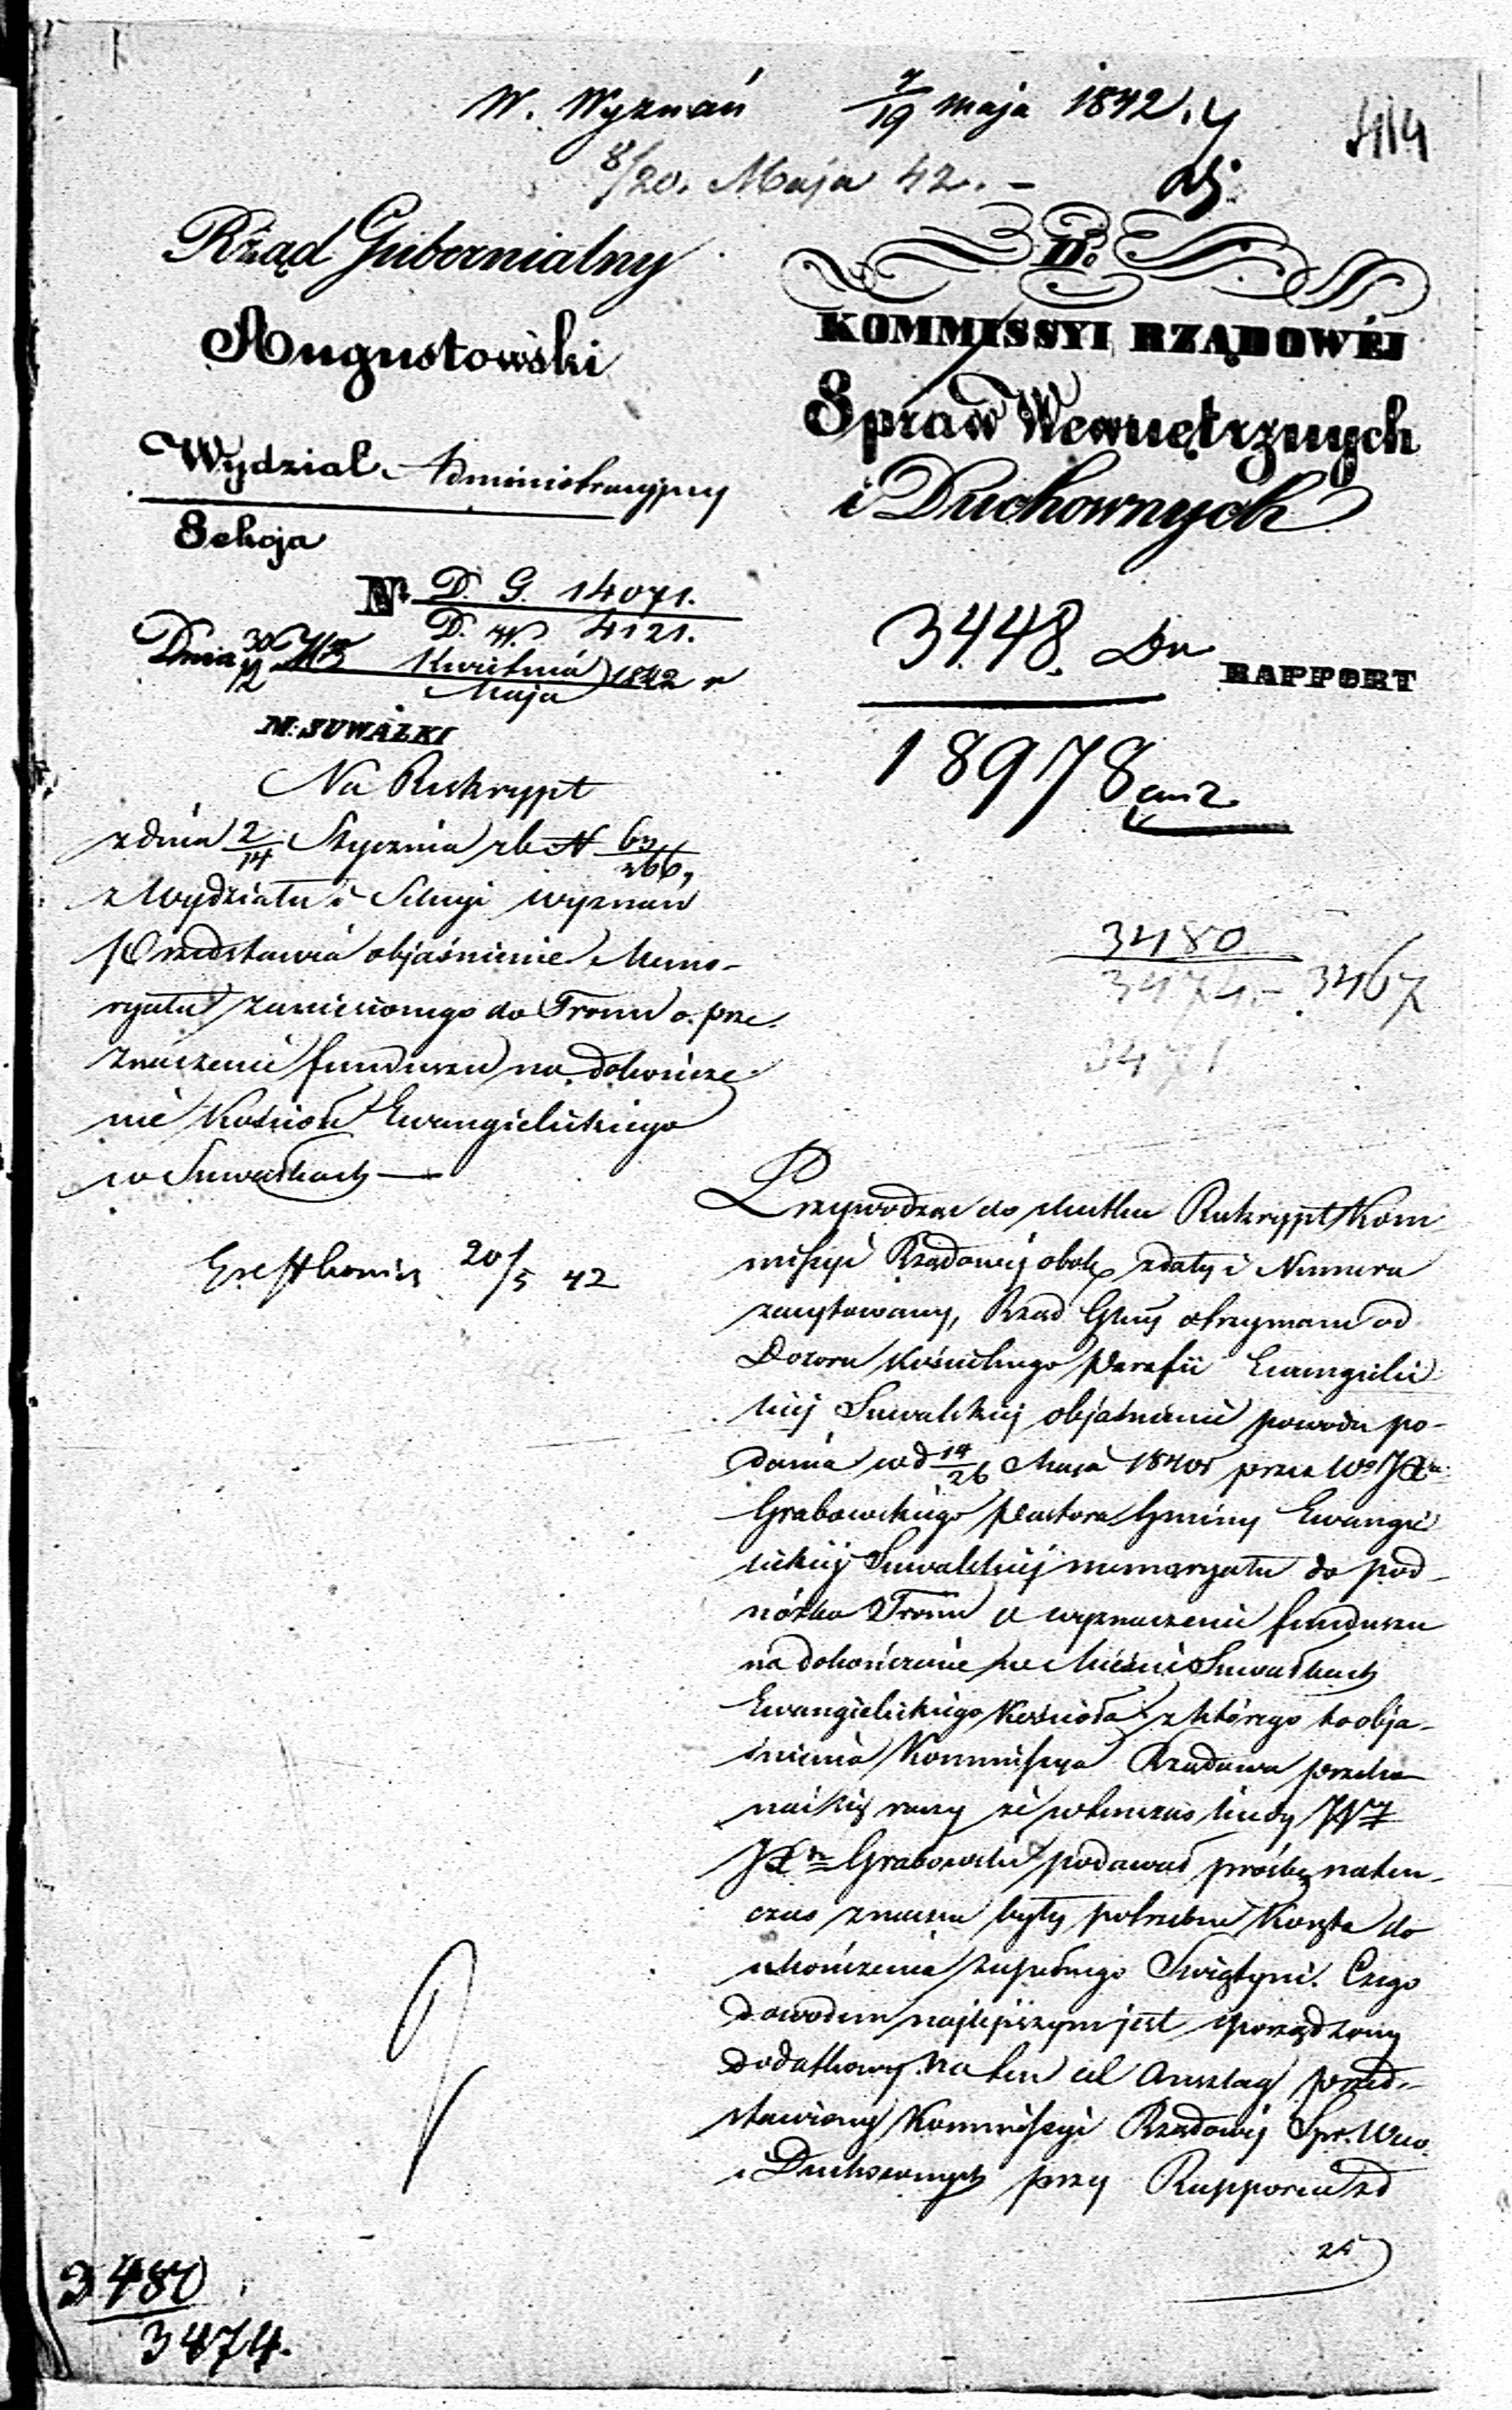 W. Wyznań 7/19 maja 1842.
8/20. Maja 42. –
414
Rząd Gubernialny
Augustowski
Wydział Administracyjny
Sekcja
Nr D. G. 14071.
D. W. 4121.
Dnia 30/12 Kwietnia/Maja 1842 r
M: SUWAŁKI
Na Reskrypt
z dnia 2/14 Stycznia rb N 63/266,
z Wydziału i Sekcyi wyznań
Przedstawia objaśnienie Memo-
ryału zaniesionego do Tronu o prze-
znaczenie funduszu na dokończe-
nie Kościoła Ewangielickiego
w Suwałkach —
20/5 42
Do
KOMMISSYI RZĄDOWÉJ
Spraw Wewnętrznych
i Duchownych
3448.
RAPPORT
18978
3480
3474. – 3467
3471
Przywodząc do skutku Reskrypt Kom-
missyi Rządowéj obok z daty i Numeru
zacytowany, Rząd Gubny otrzymane od
Dozoru Kościelnego Parafii Ewangielic
kiej Suwalskiej objaśnienie powodu po-
dania w d 14/26 Maja 1840r przez
Grabowskiego Pastora Gminy Ewangie
lickiej Suwalskiej memoryału do pod-
nóżka Tronu o wyznaczenie funduszu
na dokończenie w Mieście Suwałkach
Ewangielickiego Kościoła z którego to obja-
śnienia Kommissya Rządowa przeko
nać się raczy że wówczas kiedy
Grabowski podawał prośbę naten-
czas znaczne były potrzebne Koszta do
ukończenia zupełnego Świątyni. Czego
dowodem najlepszym jest sporządzony
dodatkowy na ten cel Anszlag przed-
stawiony Kommissyi Rządowéj Spr. Wew.
i Duchownych przy Rapporcie z d
25
3480
3474.